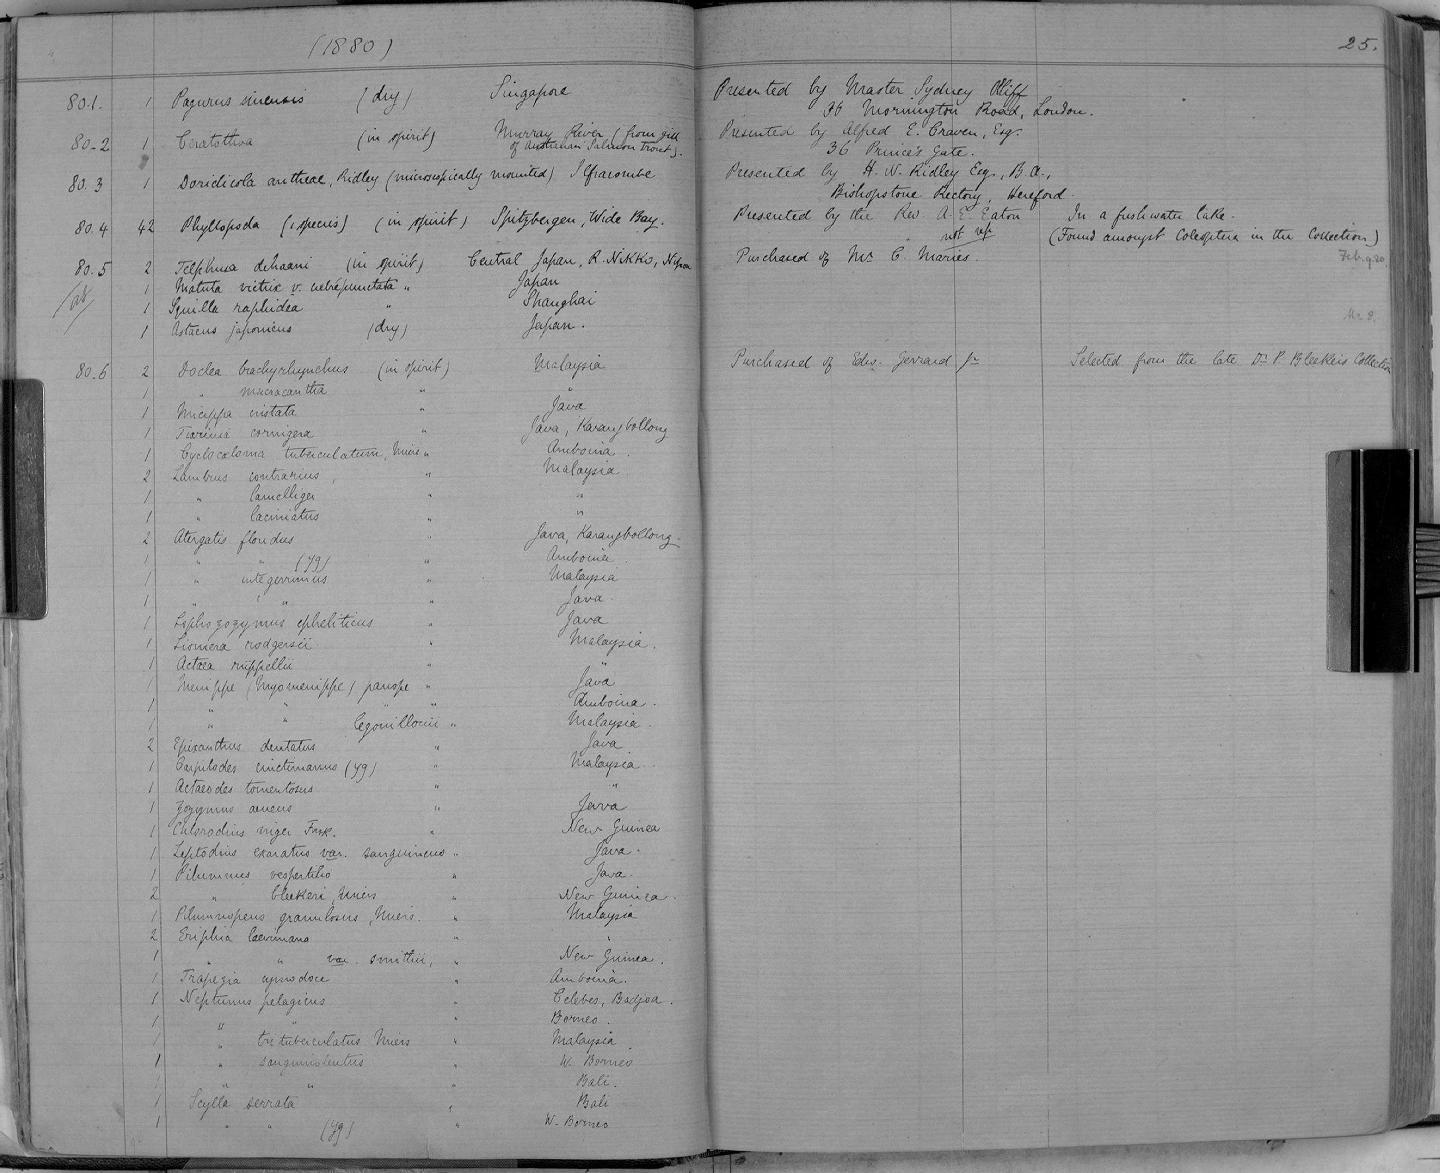 (1880)
25.
80.1. 1 Pagurus sinensis (dry) Singapore Presented by Master Sydney Oliff
36 Mornington Road, London.
80.2 1 Ceratothoa (in spirit) Murray River (from gill Presented by Alfred E. Craven, Esq.
of Australian Salmon trout). 36 Prince's Gate.
80.3 1 Doridicola antheae, Ridley (microscopically mounted) Ilfracombe Presented by H. N. Ridley Esq., B.A.,
Bishopstone Rectory, Hereford.
80.4 42 Phyllopoda (1 species) (in spirit) Spitzbergen, Wide Bay. Presented by the Rev. A. E. Eaton In a freshwater lake.
not up (Found amongst Coleoptera in the Collection)
80.5 2 Telphusa dehaani (in spirit) Central Japan, R. Nikko, Nipon Purchased of Mr C. Maries. Feb. 9. 80.
1 Matuta victrix v. crebrepunctata " Japan
1 Squilla raphidea " Shanghai
1 Astacus japonicus (dry) Japan.
80.6 2 Doclea brachyrhynchus (in spirit) Malaysia Purchased of Edw. Gerrard Jr Selected from the late Dr P. Bleeker's Collection
1 " macracantha " "
1 Micippa cristata " Java
1 Tiarinia cornigera " Java, Karangbollong
1 Cyclocoeloma tuberculatum, Miers " Amboina.
2 Lambrus contrarius, " Malaysia
1 " lamelliger " "
1 " laciniatus " "
2 Atergatis floridus " Java, Karangbollong.
1 " " (yg) " Amboina.
1 " integerrimus " Malaysia
1 " " " Java.
1 Lophozozymus epheliticus " Java
1 Liomera rodgersii " Malaysia.
1 Actaea rüppellii " "
1 Menippe (Myomenippe) panope " Java
1 " " " " Amboina.
1 " " legouillouii " Malaysia.
2 Epixanthus dentatus " Java
1 Carpilodes cinctimanus (yg) " Malaysia.
1 Actaeodes tomentosus " "
1 Zozymus aeneus " Java
1 Chlorodius niger Forsk. " New Guinea
1 Leptodius exaratus var. sanguineus " Java.
1 Pilumnus vespertilio " Java.
2 " bleekeri, Miers " New Guinea.
1 Pilumnopeus granulosus, Miers. " Malaysia
2 Eriphia laevimana " "
1 " " var. smithii, " New Guinea.
1 Trapezia cymodoce " Amboina.
1 Neptunus pelagicus " Celebes, Badjoa.
1 " " " Borneo.
1 " trituberculatus Miers " Malaysia
1 " sanguinolentus " W. Borneo
1 " " " Bali.
1 Scylla serrata " Bali
1 " " (yg) " W. Borneo